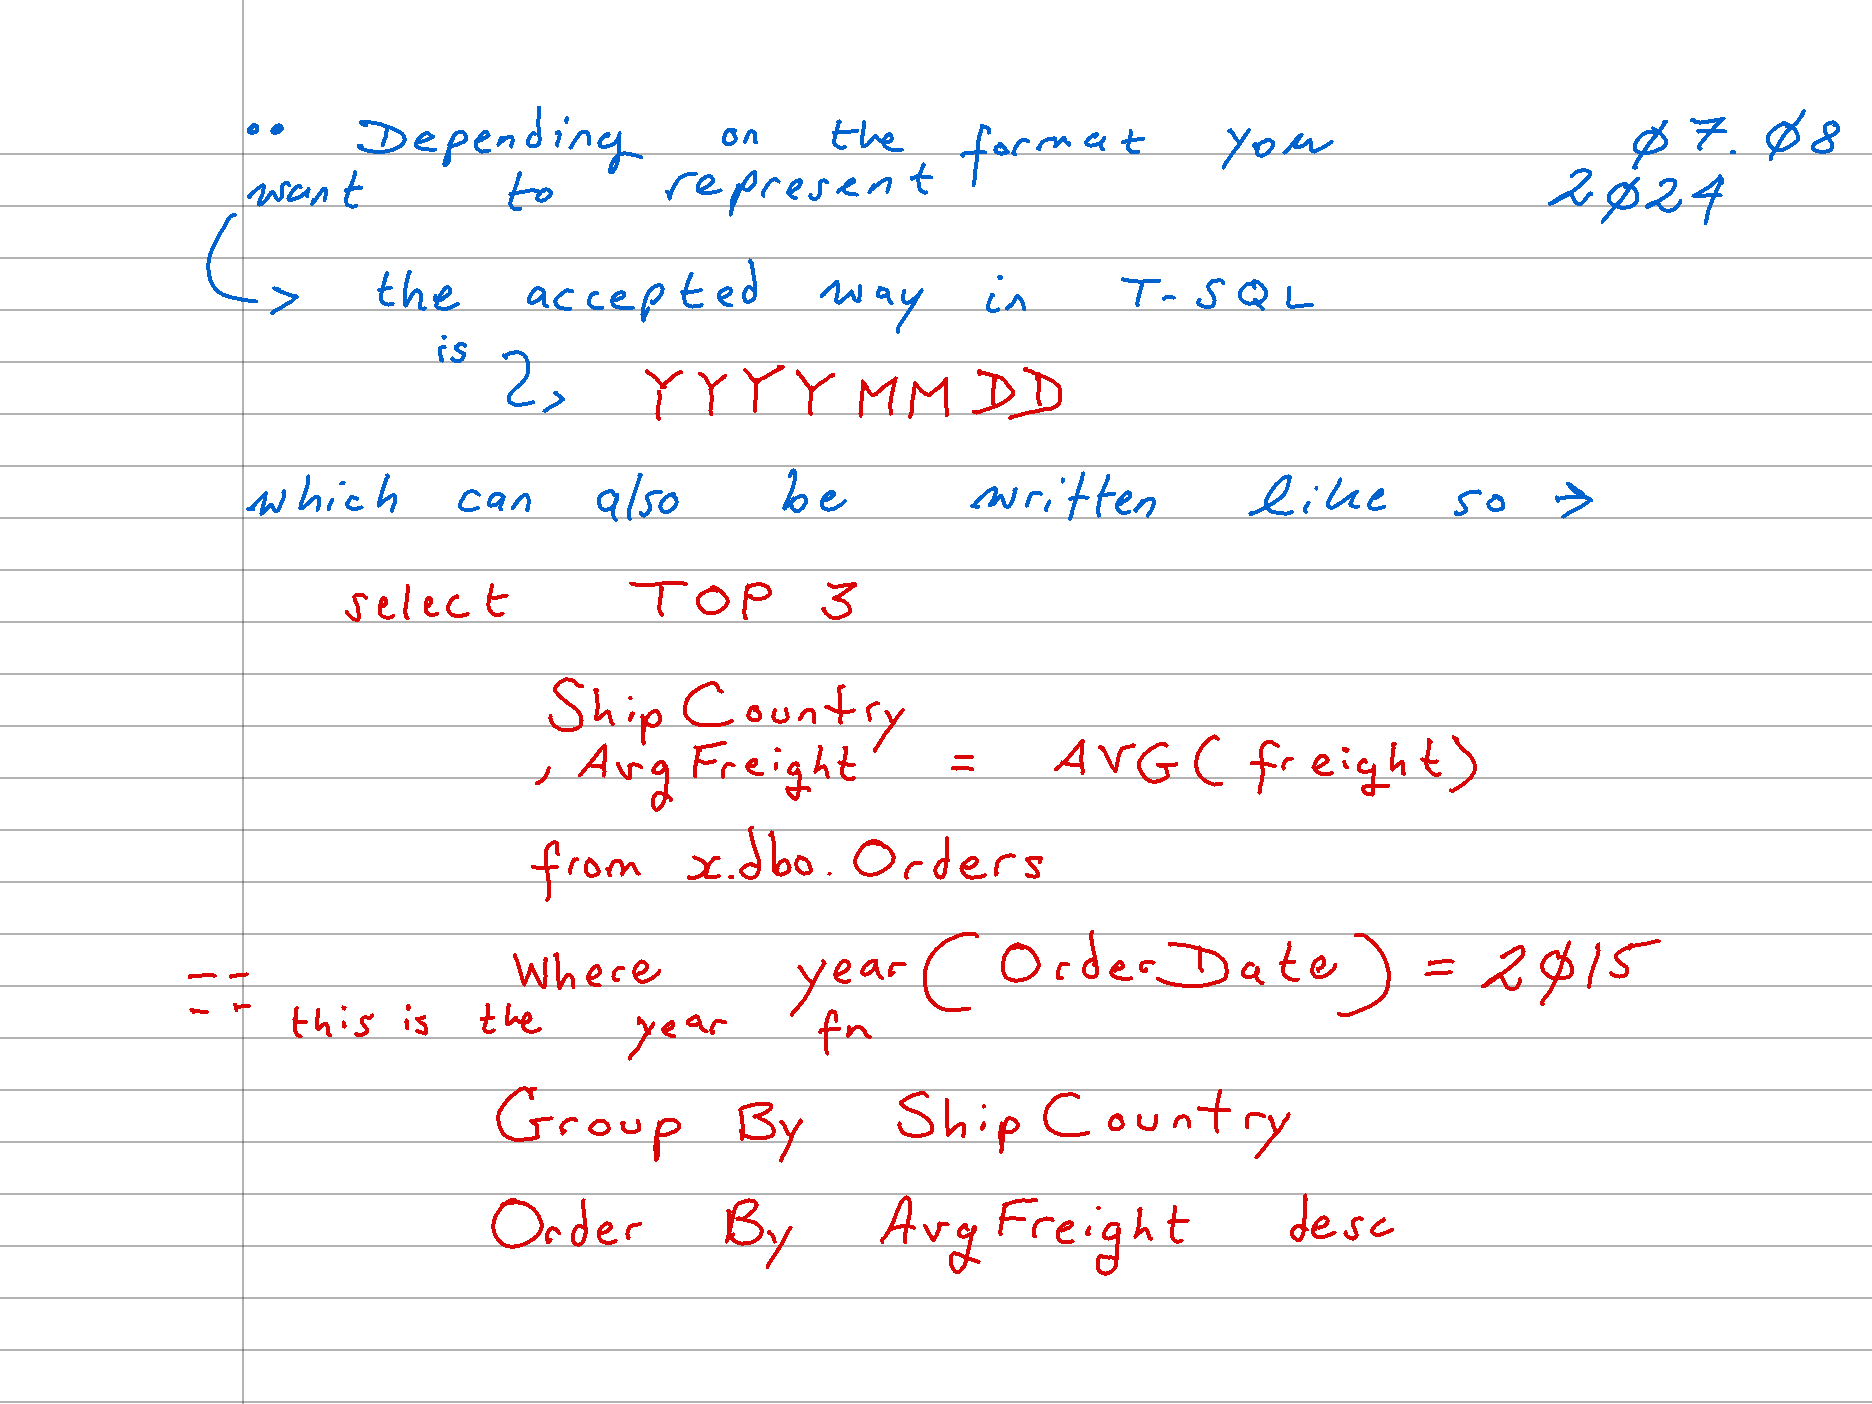 •• Depending on the format you
want to represent
07.08
2024
-> the accepted way in T-SQL
is -> YYYYMMDD
which can also be written like so ->
select TOP 3
ShipCountry
, AvgFreight = AVG(freight)
from x.dbo.Orders
-- Where year(OrderDate) = 2015
-- this is the year fn
Group By ShipCountry
Order By AvgFreight desc